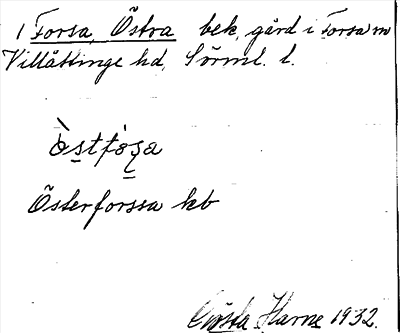 1 Forsa, Östra bek. gård i Forsa sn
Villåttinge hd, Sörml. l.
Österforssa kb
Gösta Harne 1932.